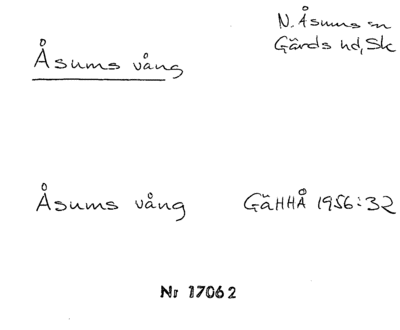 Åsums vång
N. Åsums sn
Gärds hd, Sk
Åsums vång GäHHÅ 1956:32
Nr 17062